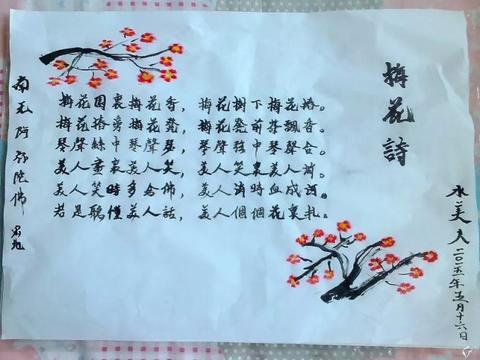 梅花詩
梅花園裏梅花香，梅花樹下梅花椿。
梅花椿旁梅花凳，梅花凳前茶飄香。
琴聲絲中琴聲瑟，琴聲弦中琴聲合。
美人畫裏美人笑，美人笑裏美人消。
美人笑時多念佛，美人消時血成河。
若是聽懂美人話，美人個個花裏扎。
水美人二〇一五年五月十六日
南无阿弥陀佛